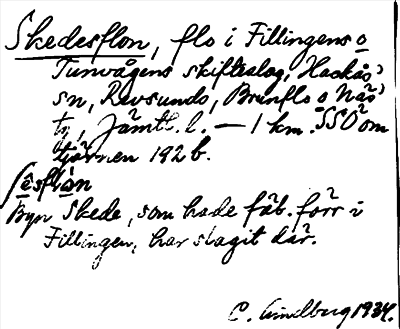 Skedesflon, flo i Fillingens o
Tunvågens skifteslag, Hackås'
sn, Revsunds, Brunflo o Näs'
ts, Jämtl. l. — 1 km. SSO om
tjärnen 192 b.
Byn Skede, som hade fäb. förr i
Fillingen, har slagit där.
1934.